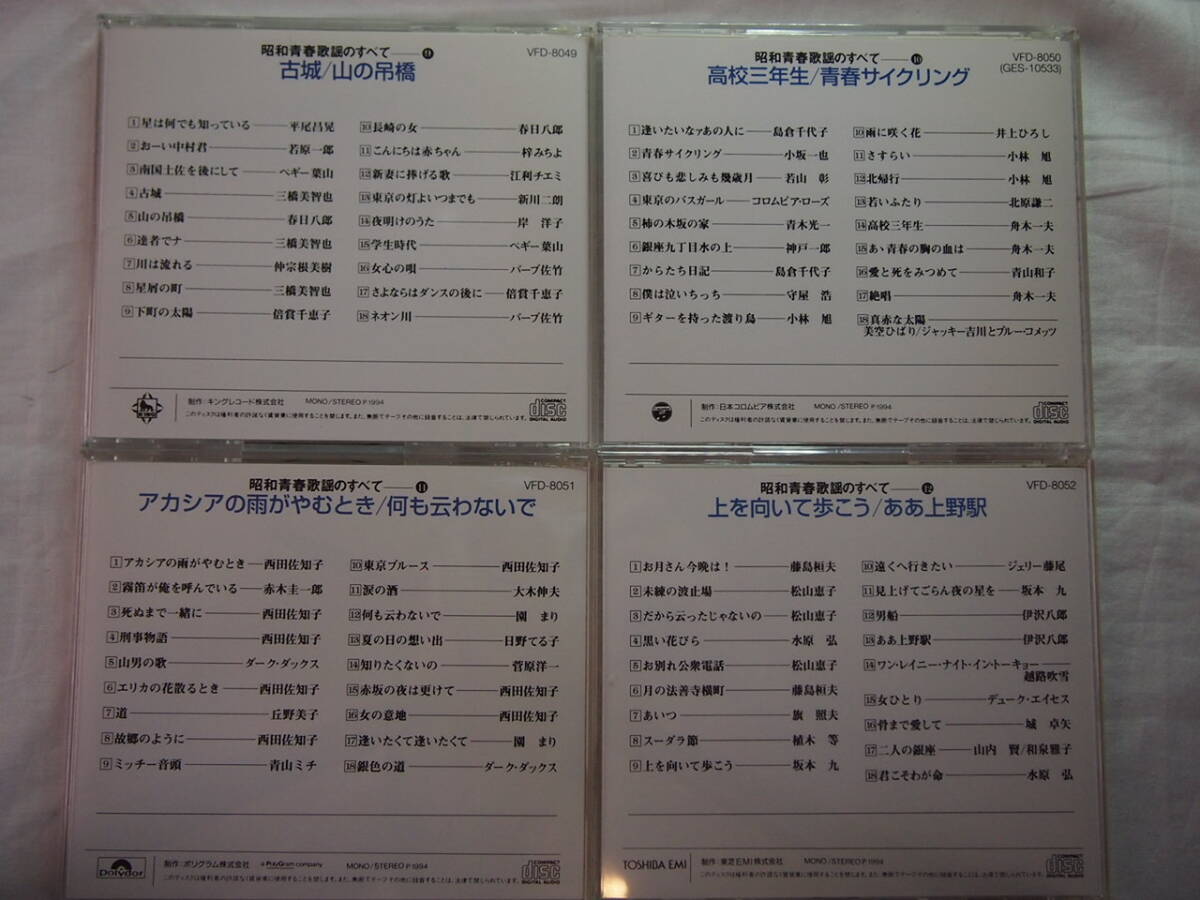 昭和青春歌謡のすべて——❾
VFD-8049
古城/山の吊橋
1 星は何でも知っている——平尾昌晃
2 おーい中村君——若原一郎
3 南国土佐を後にして——ペギー葉山
4 古城——三橋美智也
5 山の吊橋——春日八郎
6 達者でナ——三橋美智也
7 川は流れる——仲宗根美樹
8 星屑の町——三橋美智也
9 下町の太陽——倍賞千恵子
10 長崎の女——春日八郎
11 こんにちは赤ちゃん——梓みちよ
12 新妻に捧げる歌——江利チエミ
13 東京の灯よいつまでも——新川二朗
14 夜明けのうた——岸 洋子
15 学生時代——ペギー葉山
16 女心の唄——バーブ佐竹
17 さよならはダンスの後に——倍賞千恵子
18 ネオン川——バーブ佐竹
制作：キングレコード株式会社 MONO/STEREO P1994
このディスクは権利者の許諾なく賃貸業に使用することを禁じます。また、無断でテープその他に録音することは、法律で禁じられています。
COMPACT
disc
DIGITAL AUDIO
昭和青春歌謡のすべて——❿
VFD-8050
(GES-10533)
高校三年生/青春サイクリング
1 逢いたいなァあの人に——島倉千代子
2 青春サイクリング——小坂一也
3 喜びも悲しみも幾歳月——若山 彰
4 東京のバスガール——コロムビア・ローズ
5 柿の木坂の家——青木光一
6 銀座九丁目水の上——神戸一郎
7 からたち日記——島倉千代子
8 僕は泣いちっち——守屋 浩
9 ギターを持った渡り鳥——小林 旭
10 雨に咲く花——井上ひろし
11 さすらい——小林 旭
12 北帰行——小林 旭
13 若いふたり——北原謙二
14 高校三年生——舟木一夫
15 あゝ青春の胸の血は——舟木一夫
16 愛と死をみつめて——青山和子
17 絶唱——舟木一夫
18 真赤な太陽——
美空ひばり/ジャッキー吉川とブルー・コメッツ
制作：日本コロムビア株式会社 MONO/STEREO P1994
このディスクは権利者の許諾なく賃貸業に使用することを禁じます。また、無断でテープその他に録音することは、法律で禁じられています。
COMPACT
disc
DIGITAL AUDIO
昭和青春歌謡のすべて——⓫
VFD-8051
アカシアの雨がやむとき/何も云わないで
1 アカシアの雨がやむとき——西田佐知子
2 霧笛が俺を呼んでいる——赤木圭一郎
3 死ぬまで一緒に——西田佐知子
4 刑事物語——西田佐知子
5 山男の歌——ダーク・ダックス
6 エリカの花散るとき——西田佐知子
7 道——丘野美子
8 故郷のように——西田佐知子
9 ミッチー音頭——青山ミチ
10 東京ブルース——西田佐知子
11 涙の酒——大木伸夫
12 何も云わないで——園 まり
13 夏の日の想い出——日野てる子
14 知りたくないの——菅原洋一
15 赤坂の夜は更けて——西田佐知子
16 女の意地——西田佐知子
17 逢いたくて逢いたくて——園 まり
18 銀色の道——ダーク・ダックス
Polydor
制作：ポリグラム株式会社 a PolyGram company MONO/STEREO P1994
このディスクは権利者の許諾なく賃貸業に使用することを禁じます。また、無断でテープその他に録音することは、法律で禁じられています。
COMPACT
disc
DIGITAL AUDIO
昭和青春歌謡のすべて——⓬
VFD-8052
上を向いて歩こう/ああ上野駅
1 お月さん今晩は！——藤島桓夫
2 未練の波止場——松山恵子
3 だから云ったじゃないの——松山恵子
4 黒い花びら——水原 弘
5 お別れ公衆電話——松山恵子
6 月の法善寺横町——藤島桓夫
7 あいつ——旗 照夫
8 スーダラ節——植木 等
9 上を向いて歩こう——坂本 九
10 遠くへ行きたい——ジェリー藤尾
11 見上げてごらん夜の星を——坂本 九
12 男船——伊沢八郎
13 ああ上野駅——伊沢八郎
14 ワン・レイニー・ナイト・イン・トーキョー——
越路吹雪
15 女ひとり——デューク・エイセス
16 骨まで愛して——城 卓矢
17 二人の銀座——山内 賢/和泉雅子
18 君こそわが命——水原 弘
TOSHIBA EMI
制作：東芝EMI株式会社 MONO/STEREO P1994
このディスクは権利者の許諾なく賃貸業に使用することを禁じます。また、無断でテープその他に録音することは、法律で禁じられています。
COMPACT
disc
DIGITAL AUDIO